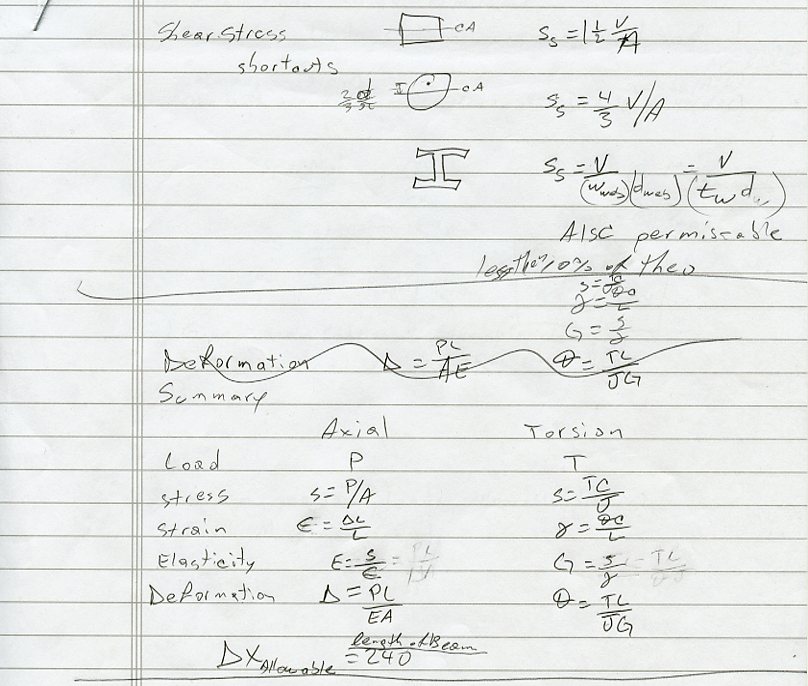 Shear Stress CA Ss = 1 1/2 V/A
shortcuts
CA Ss = 4/3 V/A
Ss = V/(wweb)(dweb) = V/(tw dw)
AISC permiseable
less then 10% of theo
γ = θc/L
G = s/γ
Deformation Δ = PL/AE θ = TL/JG
Summary
Axial Torsion
Load P T
stress s = P/A s = TC/J
strain ϵ = ΔL/L γ = θc/L
Elasticity E = s/ϵ G = s/γ
Deformation Δ = PL/EA θ = TL/JG
ΔX Allowable = length of Beam/240